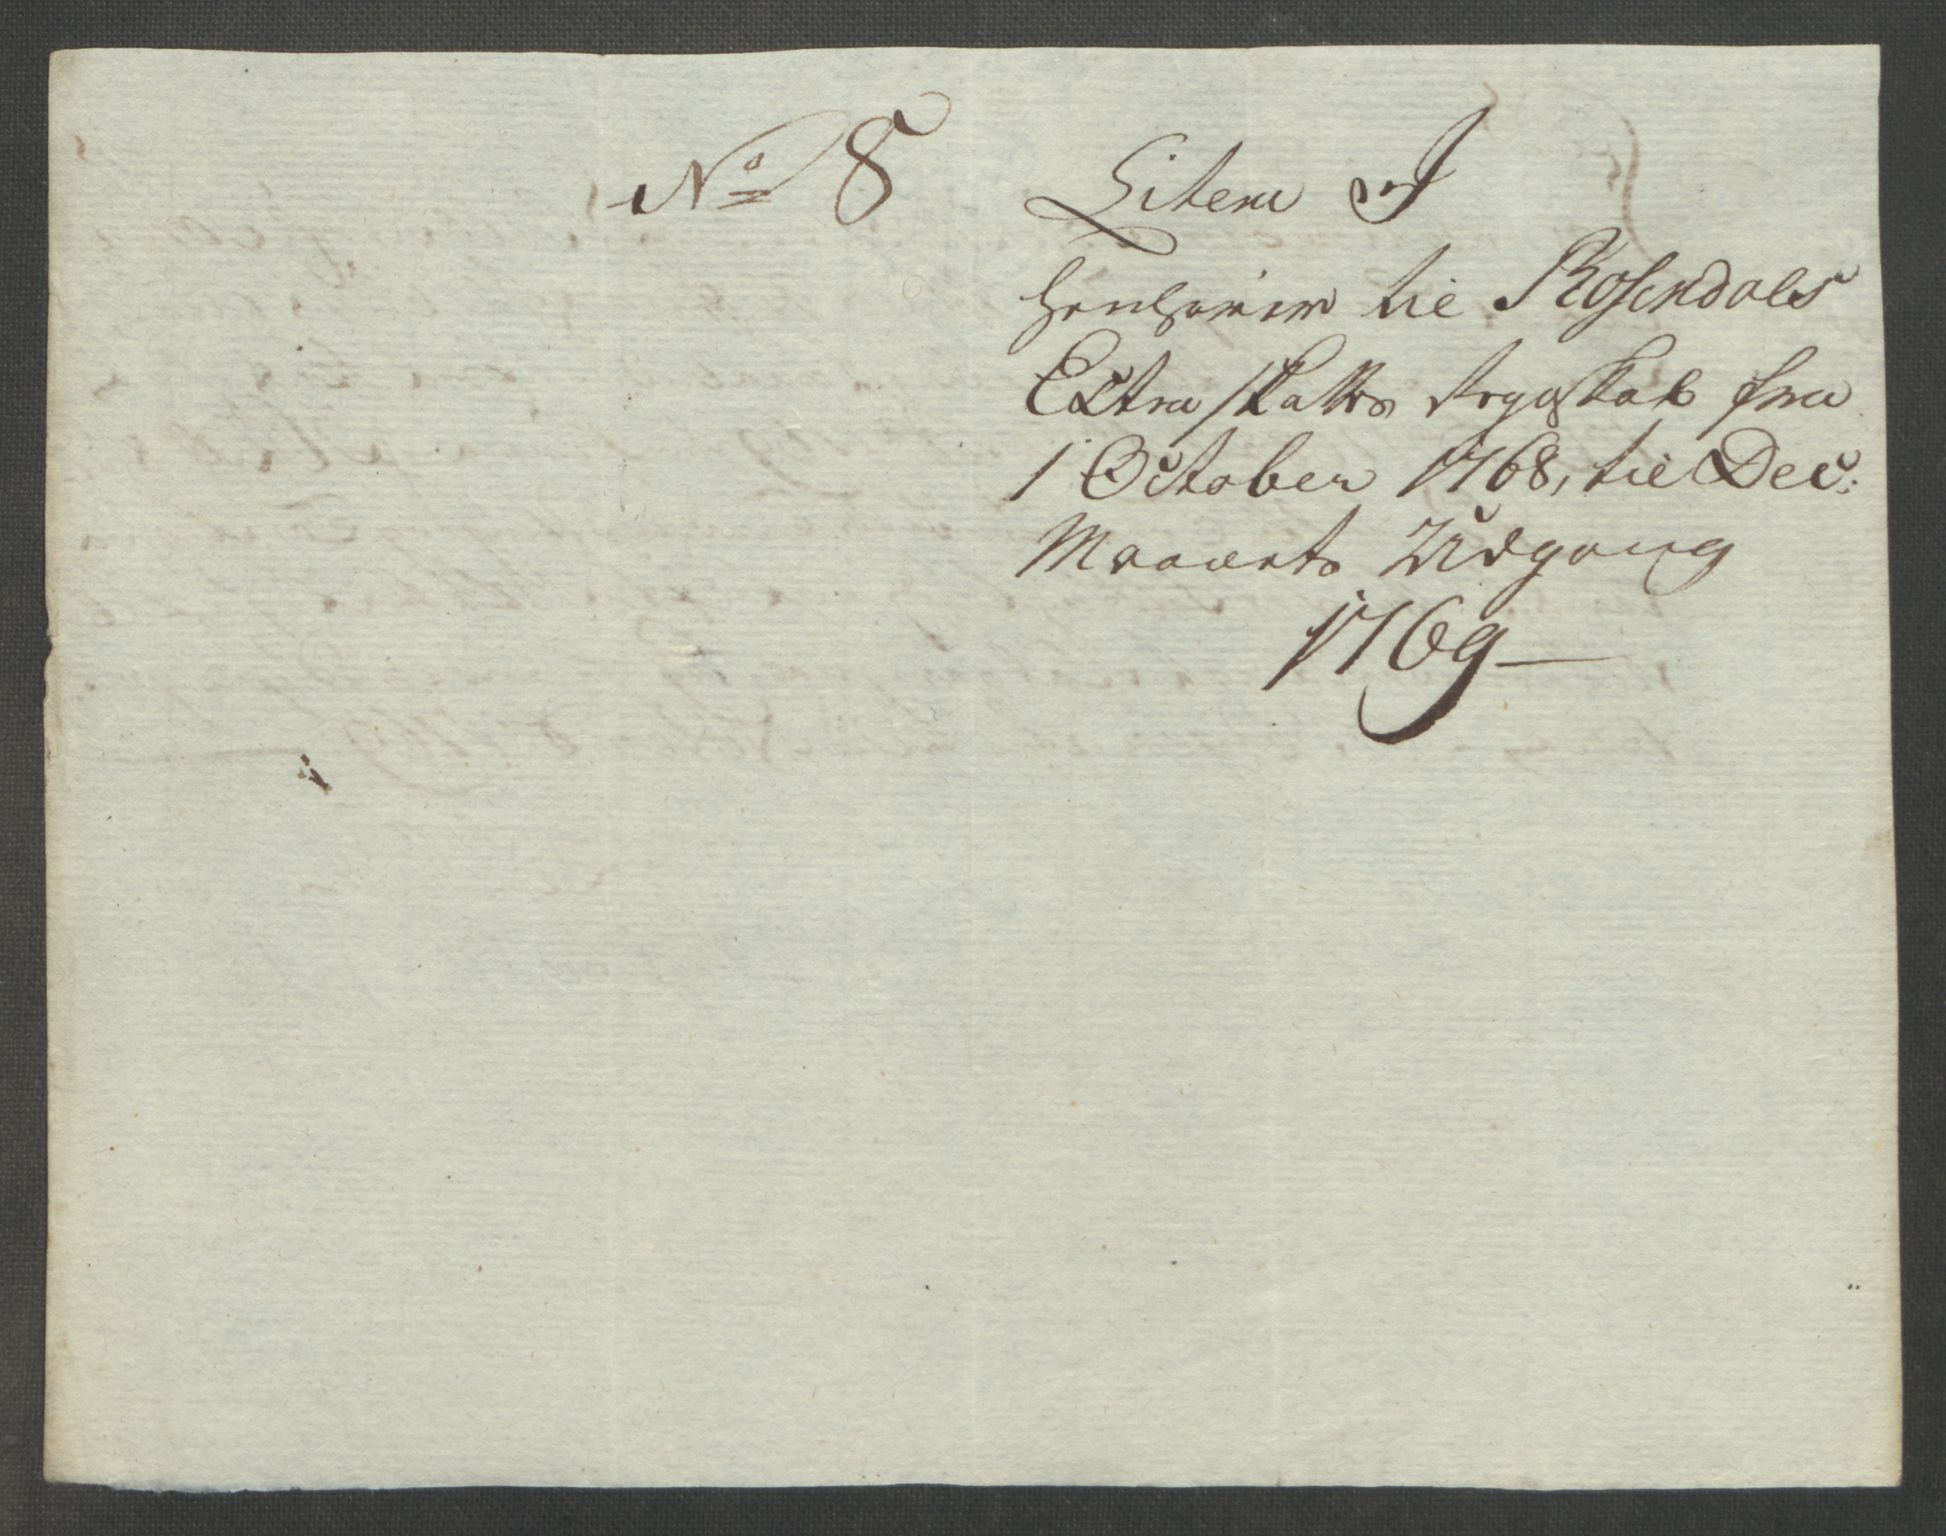 No 8
Litera J
henhörer til Rosendals
Extra skatts Regnskab fra
1 October 1768, til Dec:
Maanets Udgang
1769